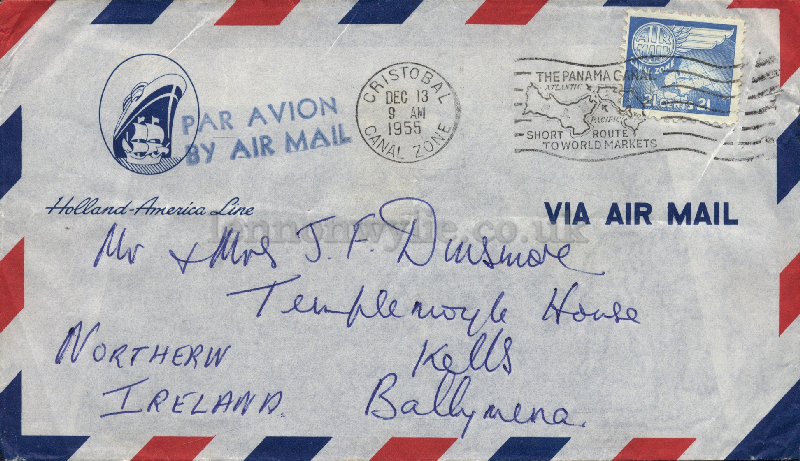 AIR
MAIL
CANAL ZONE
21 CENTS 21
THE PANAMA CANAL
ATLANTIC
PACIFIC
SHORT ROUTE
TO WORLD MARKETS
CRISTOBAL
DEC 13
9 AM
1955
CANAL ZONE
PAR AVION
BY AIR MAIL
Holland-America Line
VIA AIR MAIL
lennonwylie.co.uk
Mr & Mrs J. F. Dinsmore
Templemoyle House
Kells
Ballymena.
NORTHERN
IRELAND.